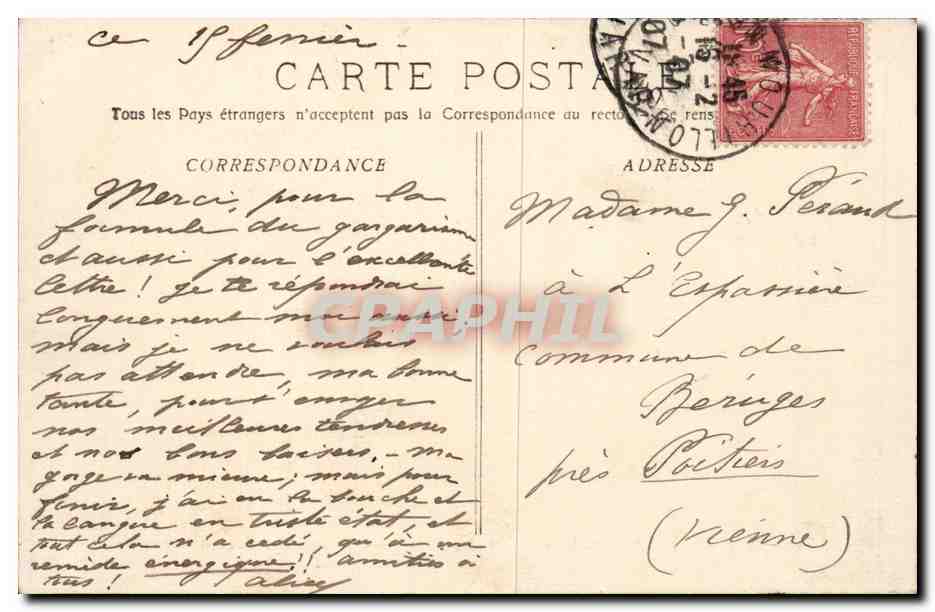 ce 15 fevrier -
CARTE POSTALE
Tous les Pays étrangers n'acceptent pas la Correspondance au recto
CORRESPONDANCE
Merci, pour la
formule du gargarisme
et aussi pour l'excellente
lettre! je te répondrai
longuement moi aussi.
mais je ne voulais
pas attendre, ma bonne
tante, pour t'envoyer
nos meilleures tendresses
et nos bons baisers. - ma
gorge va mieux; mais pour
finir, j'ai eu la bouche et
la langue en triste état, et
tout cela n'a cédé, qu'à un
remède énergique!! amitiés à
tous! Alice
ADRESSE
Madame G. Péraud
à L'Espassière
Commune de
Béruges
près Poitiers
(Vienne)
REPUBLIQUE FRANÇAISE
MOURILLON
VAR
18 45
15 - 2
07
CPAPHIL